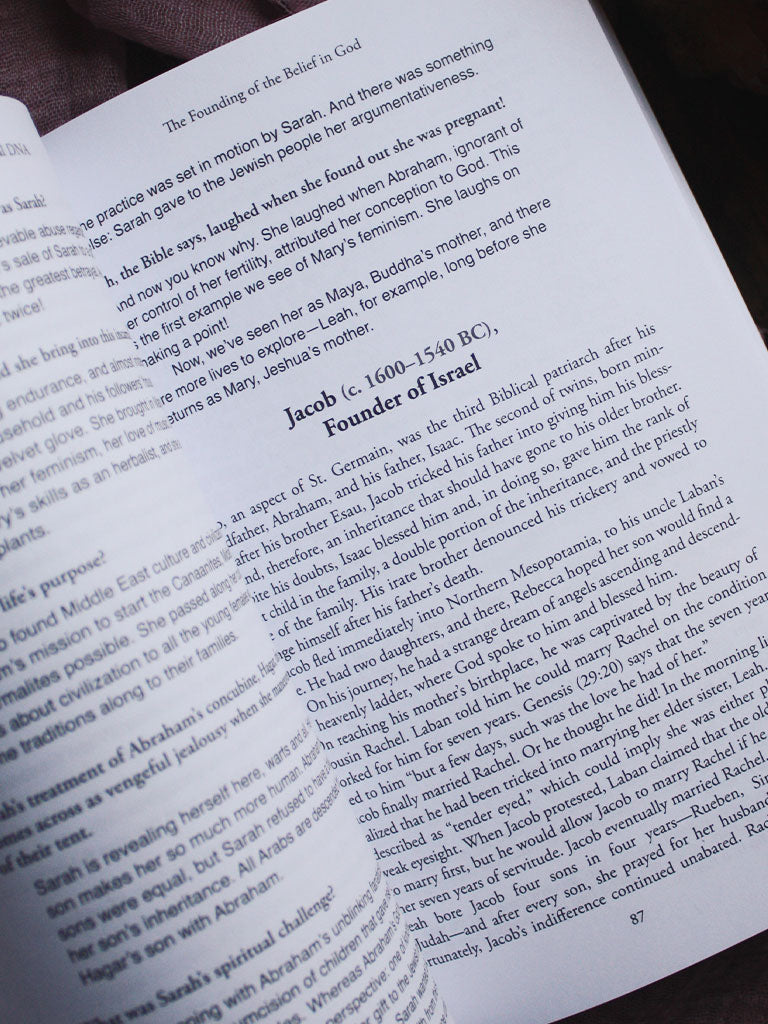 N DNA
as Sarah?
evable abuse
's sale of Sarah to
the greatest betraya
twice!
d she bring into this
endurance, and almost
usehold and his followers
velvet glove. She brought in
her feminism, her love of
ry's skills as an herbalist, and
plants.
life's purpose?
o found Middle East culture and
m's mission to start the Canaanites.
rmalites possible. She passed along
s about civilization to all the young
ne traditions along to their families.
ah's treatment of Abraham's concubine,
mes across as vengeful jealousy when she
of their tent.
Sarah is revealing herself here, warts and all
son makes her so much more human.
sons were equal, but Sarah refused to have
her son's inheritance. All Arabs are
Hagar's son with Abraham.
hat was Sarah's spiritual challenge?
ening with Abraham's unblinking
cumcision of children that gave
les. Whereas Abraham's
perspective: one of
her gift to the Jewish
Sarah wanted
The Founding of the Belief in God
he practice was set in motion by Sarah. And there was something
lse: Sarah gave to the Jewish people her argumentativeness.
h, the Bible says, laughed when she found out she was pregnant!
nd now you know why. She laughed when Abraham, ignorant of
er control of her fertility, attributed her conception to God. This
the first example we see of Mary's feminism. She laughs on
making a point!
Now, we've seen her as Maya, Buddha's mother, and there
re more lives to explore—Leah, for example, long before she
eturns as Mary, Jeshua's mother.
Jacob (c. 1600–1540 BC),
Founder of Israel
, an aspect of St. Germain, was the third Biblical patriarch after his
dfather, Abraham, and his father, Isaac. The second of twins, born min-
after his brother Esau, Jacob tricked his father into giving him his bless-
nd, therefore, an inheritance that should have gone to his older brother.
ite his doubts, Isaac blessed him and, in doing so, gave him the rank of
child in the family, a double portion of the inheritance, and the priestly
e of the family. His irate brother denounced his trickery and vowed to
nge himself after his father's death.
cob fled immediately into Northern Mesopotamia, to his uncle Laban's
e. He had two daughters, and there, Rebecca hoped her son would find a
On his journey, he had a strange dream of angels ascending and descend-
heavenly ladder, where God spoke to him and blessed him.
n reaching his mother's birthplace, he was captivated by the beauty of
ousin Rachel. Laban told him he could marry Rachel on the condition
orked for him for seven years. Genesis (29:20) says that the seven year
ed to him "but a few days, such was the love he had of her."
cob finally married Rachel. Or he thought he did! In the morning li
alized that he had been tricked into marrying her elder sister, Leah,
described as "tender eyed," which could imply she was either p
weak eyesight. When Jacob protested, Laban claimed that the old
o marry first, but he would allow Jacob to marry Rachel if he
er seven years of servitude. Jacob eventually married Rachel,
eah bore Jacob four sons in four years—Rueben, Sim
Judah—and after every son, she prayed for her husband
rtunately, Jacob's indifference continued unabated. Rac
87